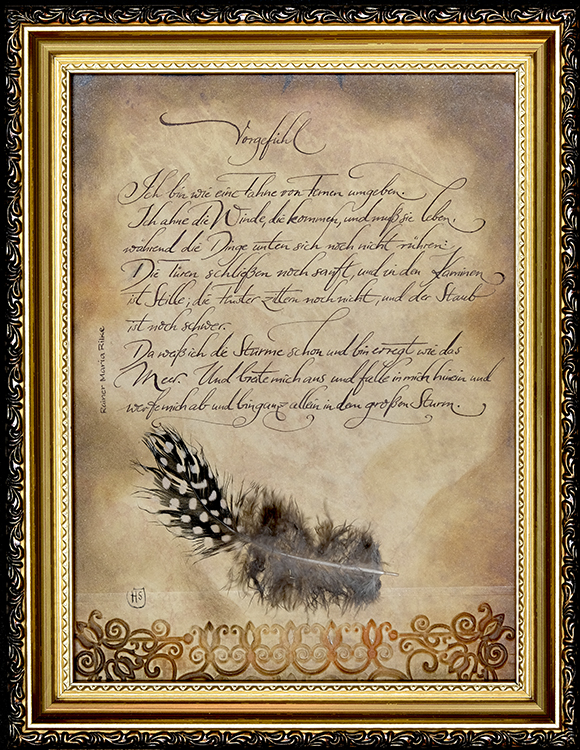 Vorgefühl
Ich bin wie eine Fahne von Fernen umgeben.
Ich ahne die Winde, die kommen, und muß sie leben,
während die Dinge unten sich noch nicht rühren:
Die Türen schließen noch sanft, und in den Kaminen
ist Stille; die Fenster zittern noch nicht, und der Staub
ist noch schwer.
Da weiß ich die Stürme schon und bin erregt wie das
Meer. Und breite mich aus und falle in mich hinein und
werfe mich ab und bin ganz allein in dem großen Sturm.
Rainer Maria Rilke
HS